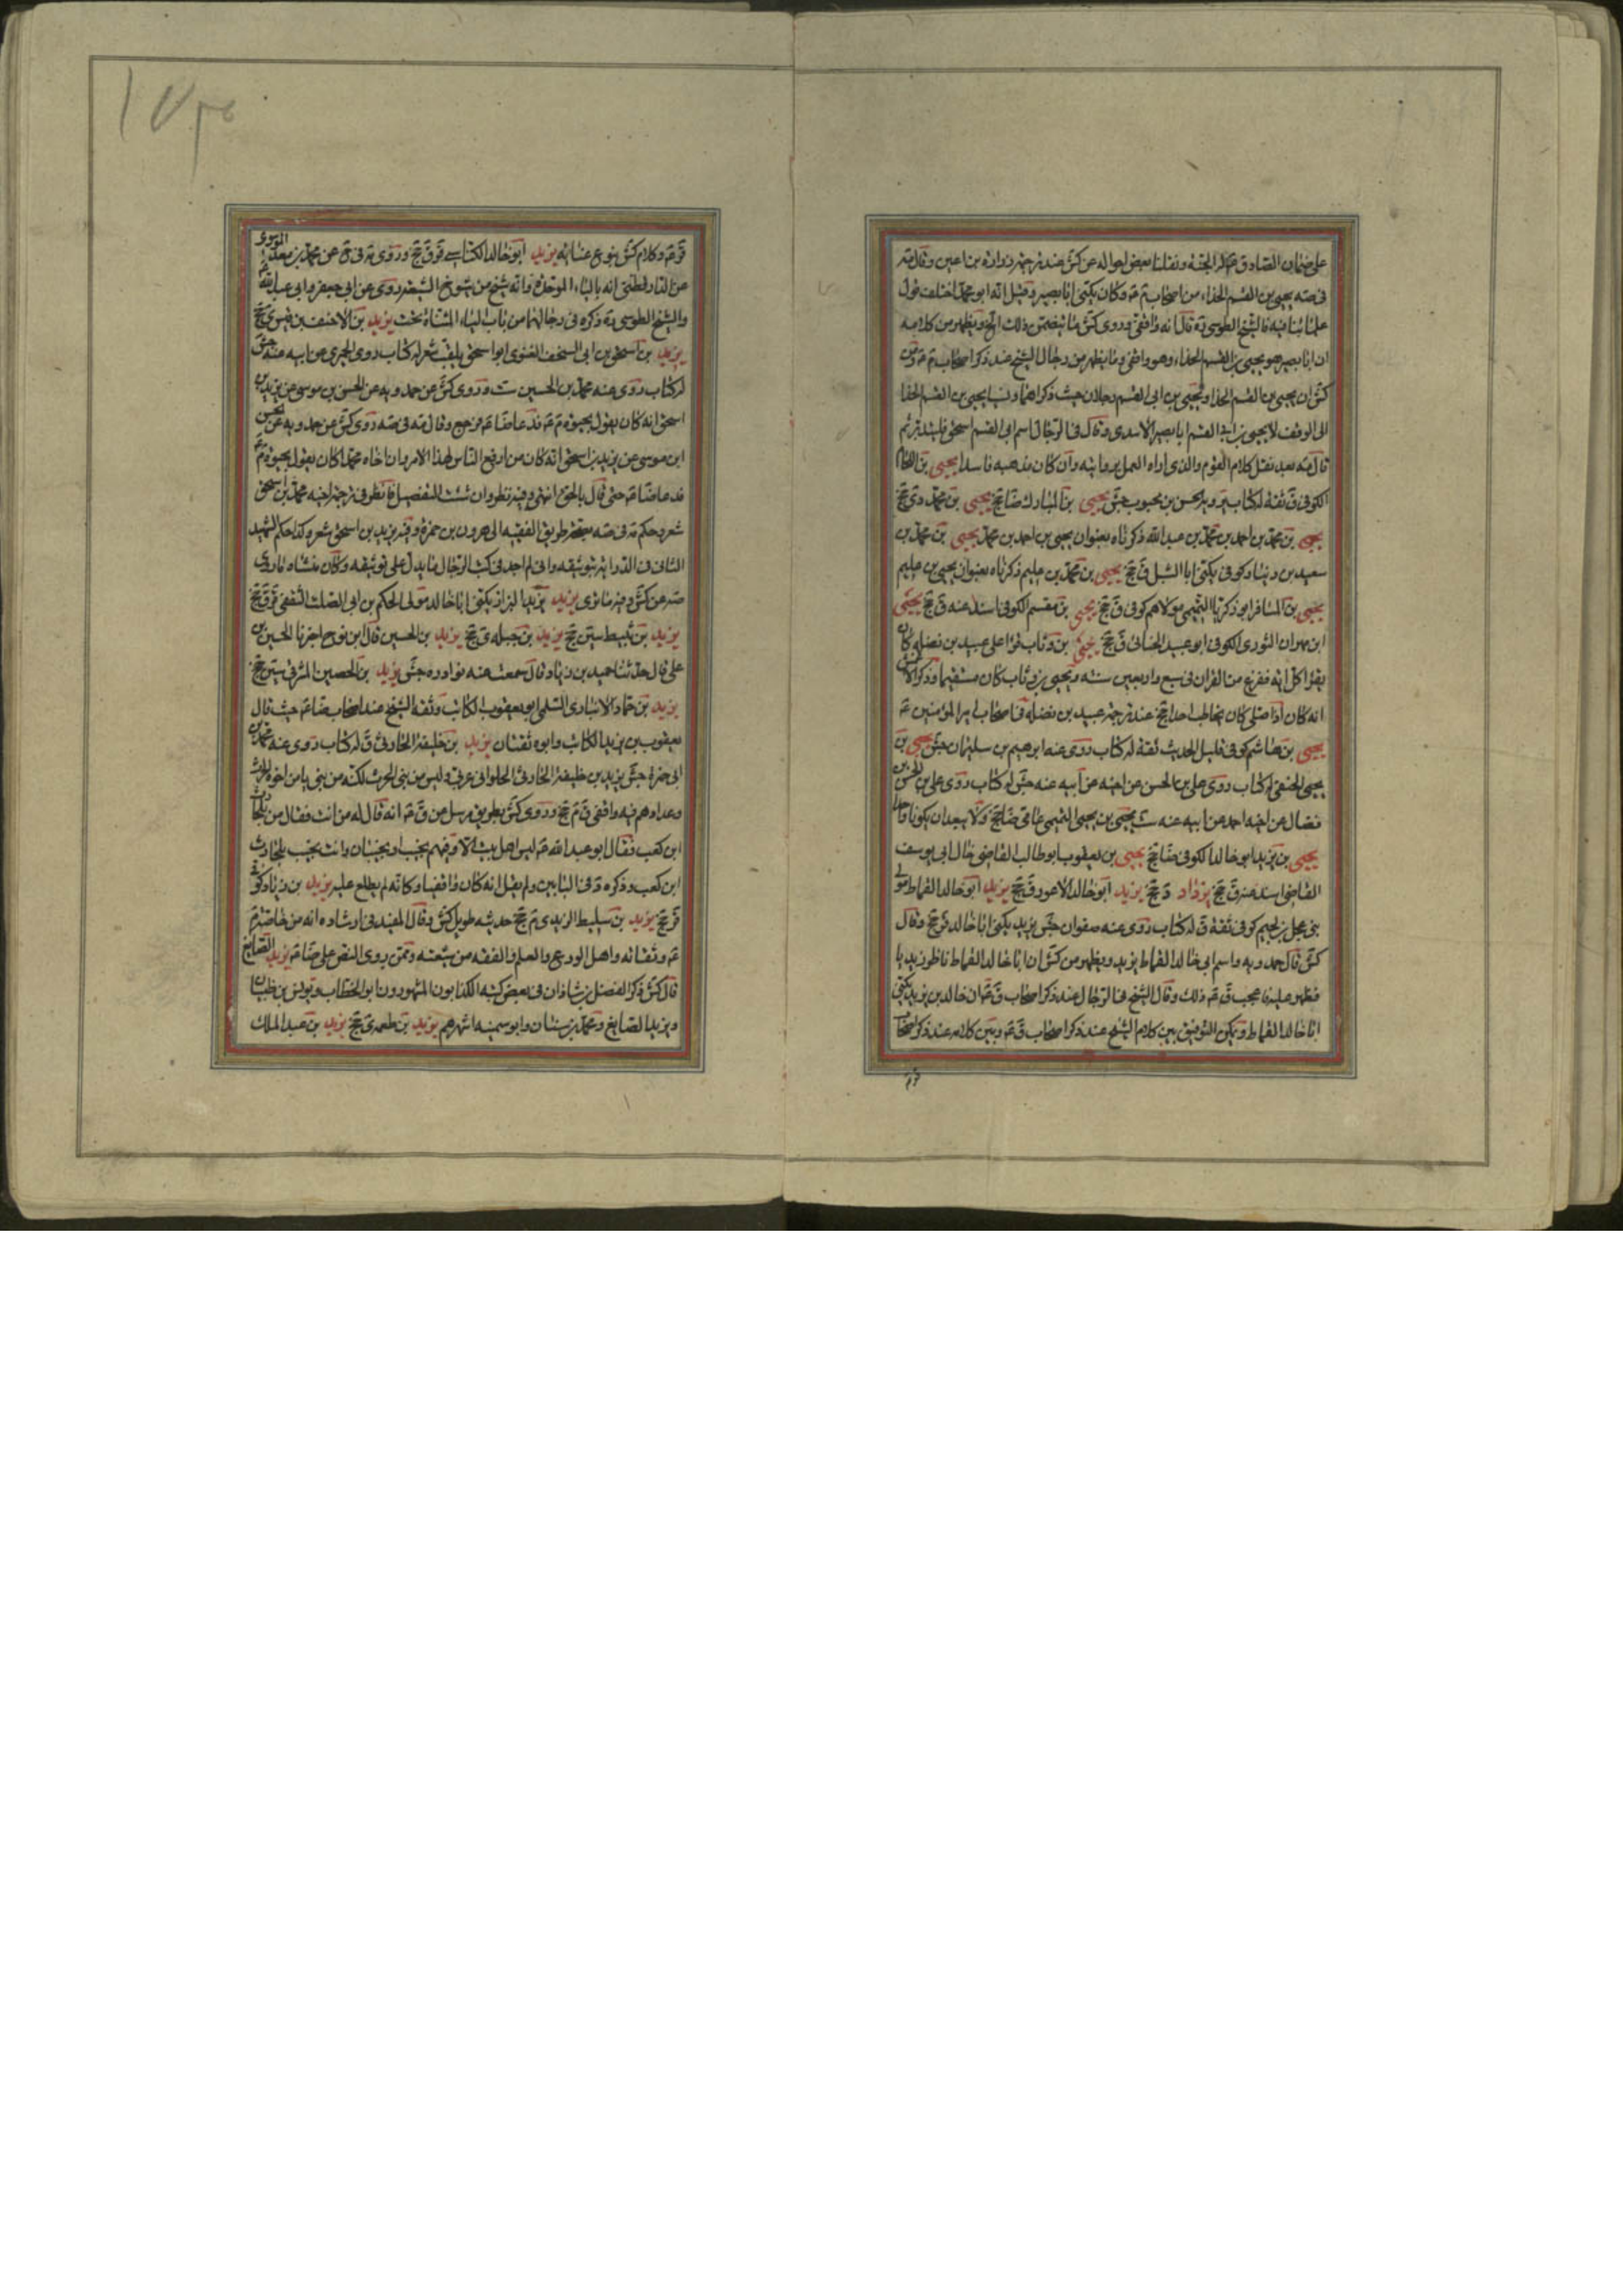 على ضمان الصادق ع له الجنة ونقلنا بعض احواله عن كش عند ترجمة زرارة بن اعين وقال مة
فى صه يحيى بن القسم الحذاء من اصحاب م ع وكان يكنى ابا بصير وقيل انه ابو محمد اختلف قول
علمائنا فيه فالشيخ الطوسى ره قال انه واقفى وروى كش ما يتضمن ذلك الخ ويظهر من كلامه
ان ابا بصير هو يحيى بن القسم الحذاء وهو واقفى وما يظهر من رجال الشيخ عند ذكر اصحاب م ع ومن
كش ان يحيى بن القسم الحذا ويحيى بن ابى القسم رجلان حيث ذكراهما ونسبا يحيى بن القسم الحذا
الى الوقف لا يحيى بن ابى القسم ابا بصير الاسدى وقال فى الرجال اسم ابى القسم اسحق فليتدبر ثم
قال مه بعد نقل كلام القوم والذى اراه العمل بروايته وان كان مذهبه فاسدا يحيى بن اللحام
الكوفى ق ثقة له كتاب يرويه الحسن بن محبوب جش يحيى بن المبارك ضا جخ يحيى بن محمد دى جخ
يحيى بن محمد بن احمد بن محمد بن عبد الله ذكرناه بعنوان يحيى بن احمد بن محمد يحيى بن محمد بن
سعيد بن دينار كوفى يكنى ابا الشبل ق جخ يحيى بن محمد بن عليم ذكرناه بعنوان يحيى بن عليم
يحيى بن المسافر ابو زكريا التميمى مولاهم كوفى ق جخ يحيى بن مقسم الكوفى اسند عنه ق جخ يحيى
ابن مهران الثورى الكوفى ابو عبيد الحنائى ق جخ يحيى بن وثاب قرا على عبيد بن نضله كان
يقرا كل اية ففرغ من القران فى سبع واربعين سنه ويحيى بن وثاب كان مستقيما وذكر الاعمش
انه كان اذا صلى كان يخاطب احدا جخ عند ترجمة عبيد بن نضله فى اصحاب امير المؤمنين ع
يحيى بن هاشم كوفى قليل الحديث ثقة له كتاب روى عنه ابرهيم بن سليمان جش يحيى بن
يحيى الحنفى له كتاب روى على بن الحسن عن اخيه عن ابيه عنه جش له كتاب روى على بن الحسن بن
فضال عن اخيه احمد عن ابيه عنه ست يحيى بن يحيى التميمى عامى ضا جخ ولا يبعد ان يكونا واحدا
يحيى بن يزيد ابو خالد الكوفى ضا جخ يحيى بن يعقوب ابو طالب القاضى خال ابى يوسف
القاضى اسند عنه ق جخ يزداد د جخ يزيد ابو خالد الاعور ق جخ يزيد ابو خالد القماط مولى
بنى عجل بن لجيم كوفى ثقة ق له كتاب روى عنه صفوان جش يزيد يكنى ابا خالد ق جخ وقال
كش قال حمدويه واسم ابى خالد القماط يزيد ويظهر من كش ان ابا خالد القماط ناظر زيديا
فظهر عليه فاعجب ق ع ذلك وقال الشيخ فى الرجال عند ذكر اصحاب ق ع ان خالد بن يزيد يكنى
ابا خالد القماط ويكون التوفيق بين كلام الشيخ عند ذكر اصحاب ق ع وبين كلامه عند ذكر اصحاب
ق ع وكلام كش بنوع عناية يزيد ابو خالد الكناسى قر ق جخ
عن الدارقطنى انه بالباء الموحدة وانه شيخ من شيوخ الشيعة روى عن ابى جعفر وابى عبد الله ع
والشيخ الطوسى ره ذكره فى رجالهما من باب الياء المثناة تحت يزيد بن الاحنف بن قيس ى جخ
يزيد بن اسحق بن ابى السخف الغنوى ابو اسحق يلقب شعر له كتاب روى الحميرى عن ابيه عنه جش
له كتاب روى عنه محمد بن الحسين ست وروى كش عن حمدويه عن الحسن بن موسى عن يزيد بن
اسحق انه كان يقول بحيوة م ع فدعا ضا ع فرجع وقال مة فى صه روى كش عن حمدويه عن الحسن
ابن موسى عن يزيد بن اسحق انه كان من ارفع الناس لهذا الامر وان اخاه محمدا كان يقول بحيوة م ع
فدعا ضا ع حتى قال بالحق انتهى وفيه نظر وان شئت التفصيل فانظر فى ترجمة اخيه محمد بن اسحق
شعر وحكم مة فى صه بصحة طريق الفقيه الى هرون بن حمزة وفيه يزيد بن اسحق شعر وكذا حكم الشهيد
الثانى فى الدراية بتوثيقه وانى لم اجد فى كتب الرجال ما يدل على توثيقه وكان منشاه ما روى
صه عن كش وفيه ما ترى يزيد يزيد البزاز يكنى ابا خالد مولى الحكم بن ابى الصلت الثقفى قر ق جخ
يزيد بن ثبيط سين جخ يزيد بن جبله ى جخ يزيد بن الحسين قال ابن نوح اخبرنا الحسين بن
على قال حدثنا حميد بن زياد قال سمعت عنه نوادره جش يزيد بن الحصين المشرقى سين جخ
يزيد بن حماد الانبارى السلمى ابو يعقوب الكاتب وثقه الشيخ عند اصحاب ضا ع حيث قال
يعقوب بن يزيد الكاتب وابوه ثقتان يزيد بن خليفة الحارثى ق له كتاب روى عنه محمد بن
ابى حمزة جش يزيد بن خليفة الحارثى الحلوانى عربى وليس من بنى الحرث لكنه من بنى يامن اخوة الحرث
وعدادهم فيه واقفى ق م جخ وروى كش بطريق مرسل عن ق ع انه قال له من انت فقال من بلحارث
ابن كعب فقال ابو عبد الله ع ليس اهل بيت الا وفيهم نجيب او نجيبان وانت نجيب بلحارث
ابن كعب وذكره د فى البابين ولم يقل انه كان واقفيا وكانه لم يطلع عليه يزيد بن زياد كوفى
قر جخ يزيد بن سليط الزيدى م جخ حديثه طويل كش وقال المفيد فى ارشاده انه من خاصة م
ع وثقاته واهل الورع والعلم والفقه من شيعته وممن روى النص على ضا ع يزيد الصايغ
قال كش ذكر الفضل بن شاذان فى بعض كتبه الكذابون المشهورون ابو الخطاب ويونس بن ظبيان
ويزيد الصايغ ومحمد بن سنان وابو سمينه اشهرهم يزيد بن طعمه ى جخ يزيد بن عبد الملك